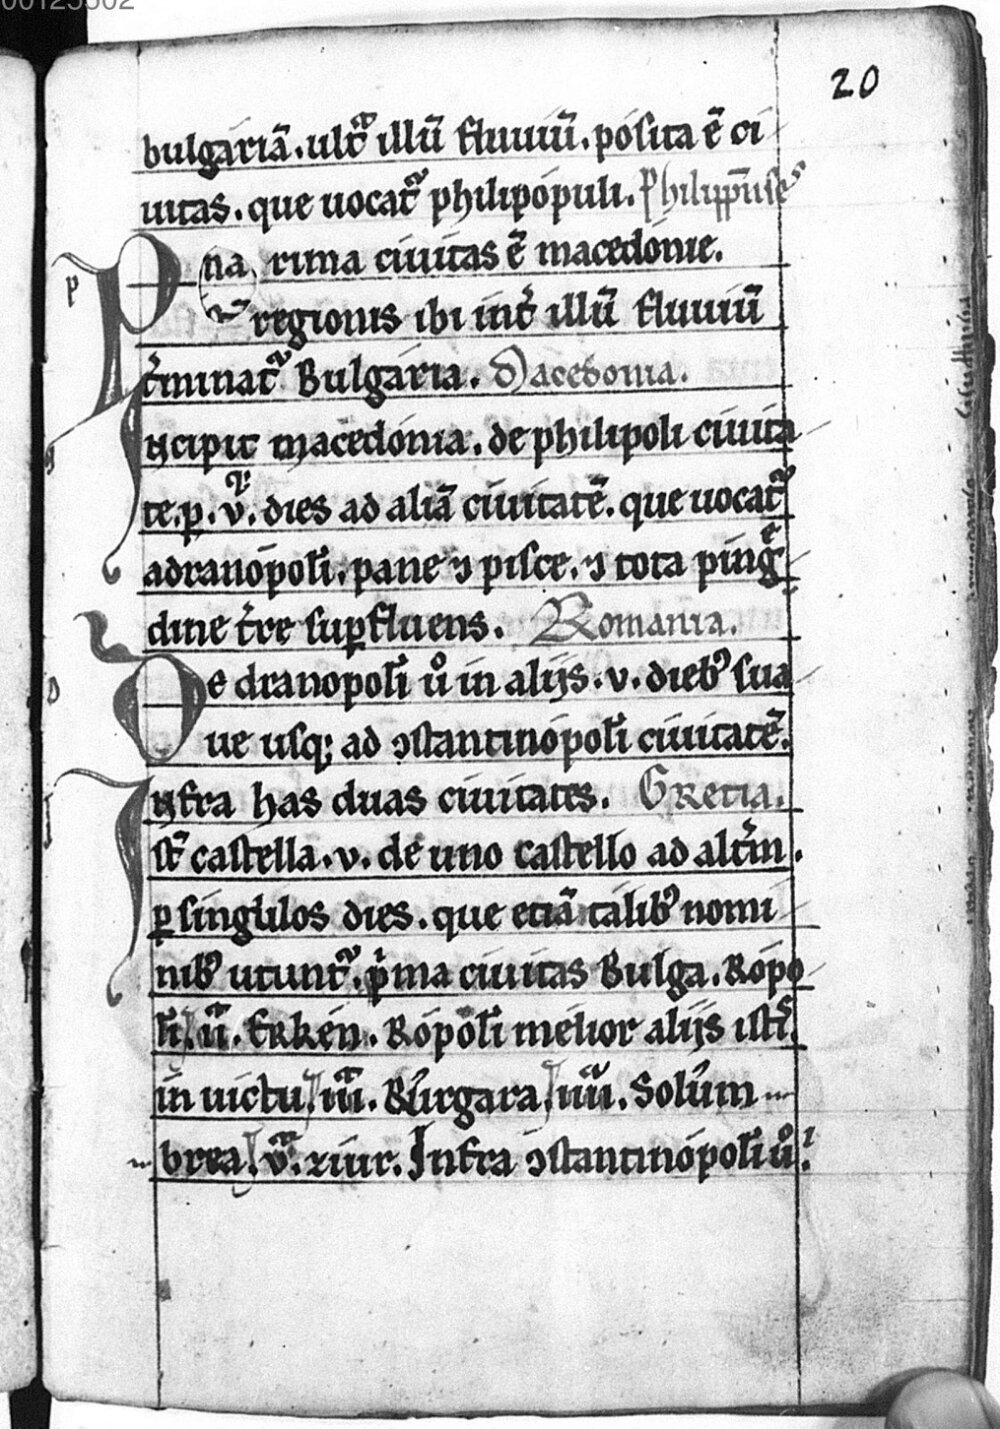 00125302
20
bulgariã. ultᵃ illũ fluuiũ. posita ẽ ci
uitas. que uocat᷑ philipopuli. Philippẽses
Prima ciuitas ẽ macedonie.
regionis ibi int̉ illũ fluuiũ
t̉minat᷑ Bulgaria. Macedonia.
Incipit macedonia. de philipoli ciuita
te. p. v. dies ad aliã ciuitatẽ. que uocat᷑
adranopoli. pane ⁊ pisce. ⁊ tota pingᵉ
dine t̉re supfluens. Romania.
De dranopoli ů in alijs. v. dieb᷒ sua
ue usq; ad ↄstantinopoli ciuitatẽ.
Infra has duas ciuitates. Gretia.
st̃ castella. v. de uno castello ad alt̉m.
ꝑ singulos dies. que etiã talib᷒ nomi
nib᷒ utunt᷑. pͥma ciuitas Bulga. Ropo
li. ii. Erkén. Ropoli melior alijs isti.
in uictu. iii. Burgara. iiii. Solum
brea. v. Infra ↄstantinopoli ů